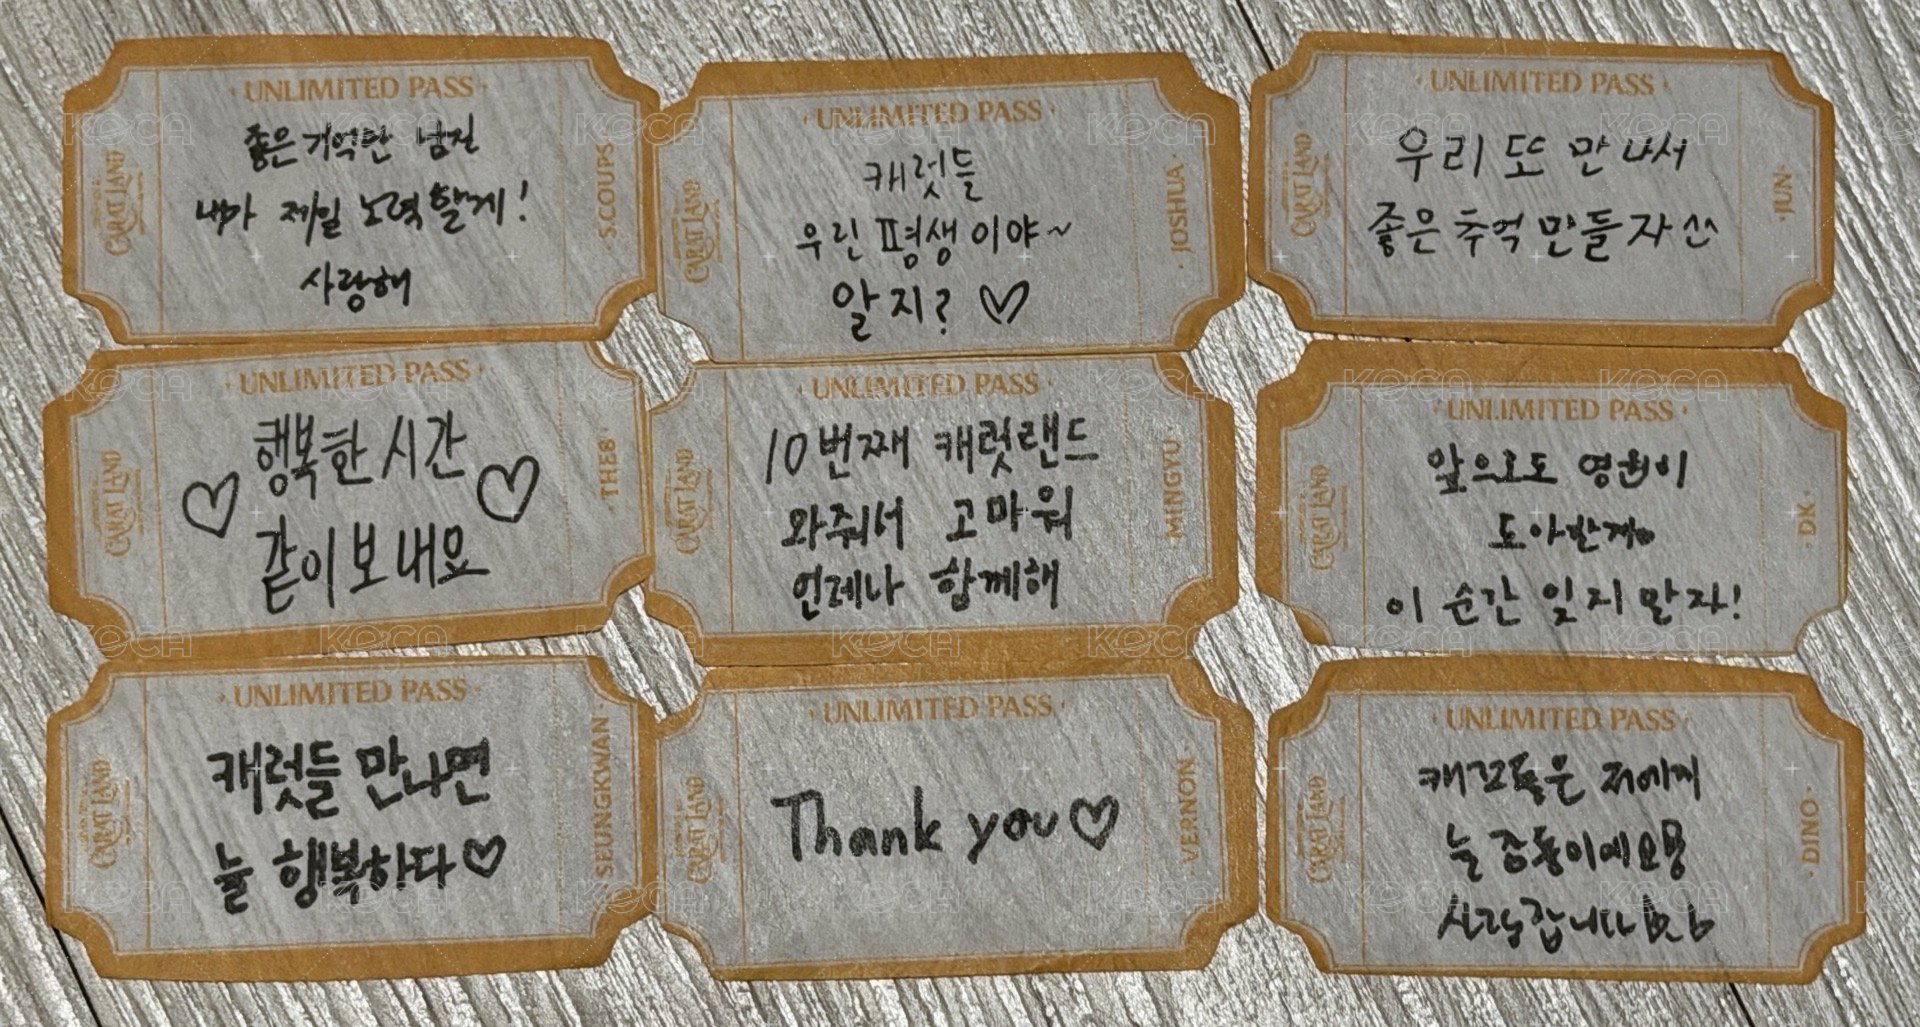 UNLIMITED PASS
CARAT LAND
좋은 기억만 남길
내가 제일 노력할게!
사랑해
S.COUPS
UNLIMITED PASS
CARAT LAND
캐럿들
우린 평생이야~
알지? ♡
JOSHUA
UNLIMITED PASS
CARAT LAND
우리 또 만나서
좋은 추억 만들자
JUN
UNLIMITED PASS
CARAT LAND
♡ 행복한 시간 ♡
같이 보내요
THE8
UNLIMITED PASS
CARAT LAND
10번째 캐럿랜드
와줘서 고마워
언제나 함께해
MINGYU
UNLIMITED PASS
CARAT LAND
앞으로도 영원히
이 순간 잊지 말자!
DK
UNLIMITED PASS
CARAT LAND
캐럿들 만나면
늘 행복하다♡
SEUNGKWAN
UNLIMITED PASS
CARAT LAND
Thank you♡
VERNON
UNLIMITED PASS
CARAT LAND
저에게
늘 감동이에요
사랑합니다
DINO
KOCA